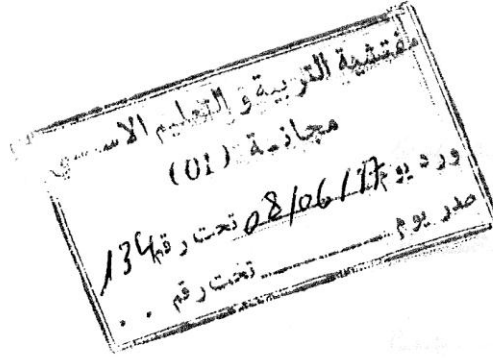 مفتشية التربية و التعليم الاساسي
مجانة (01)
ورد يوم 08/06/17 تحت رقم 134
صدر يوم ........ تحت رقم . .